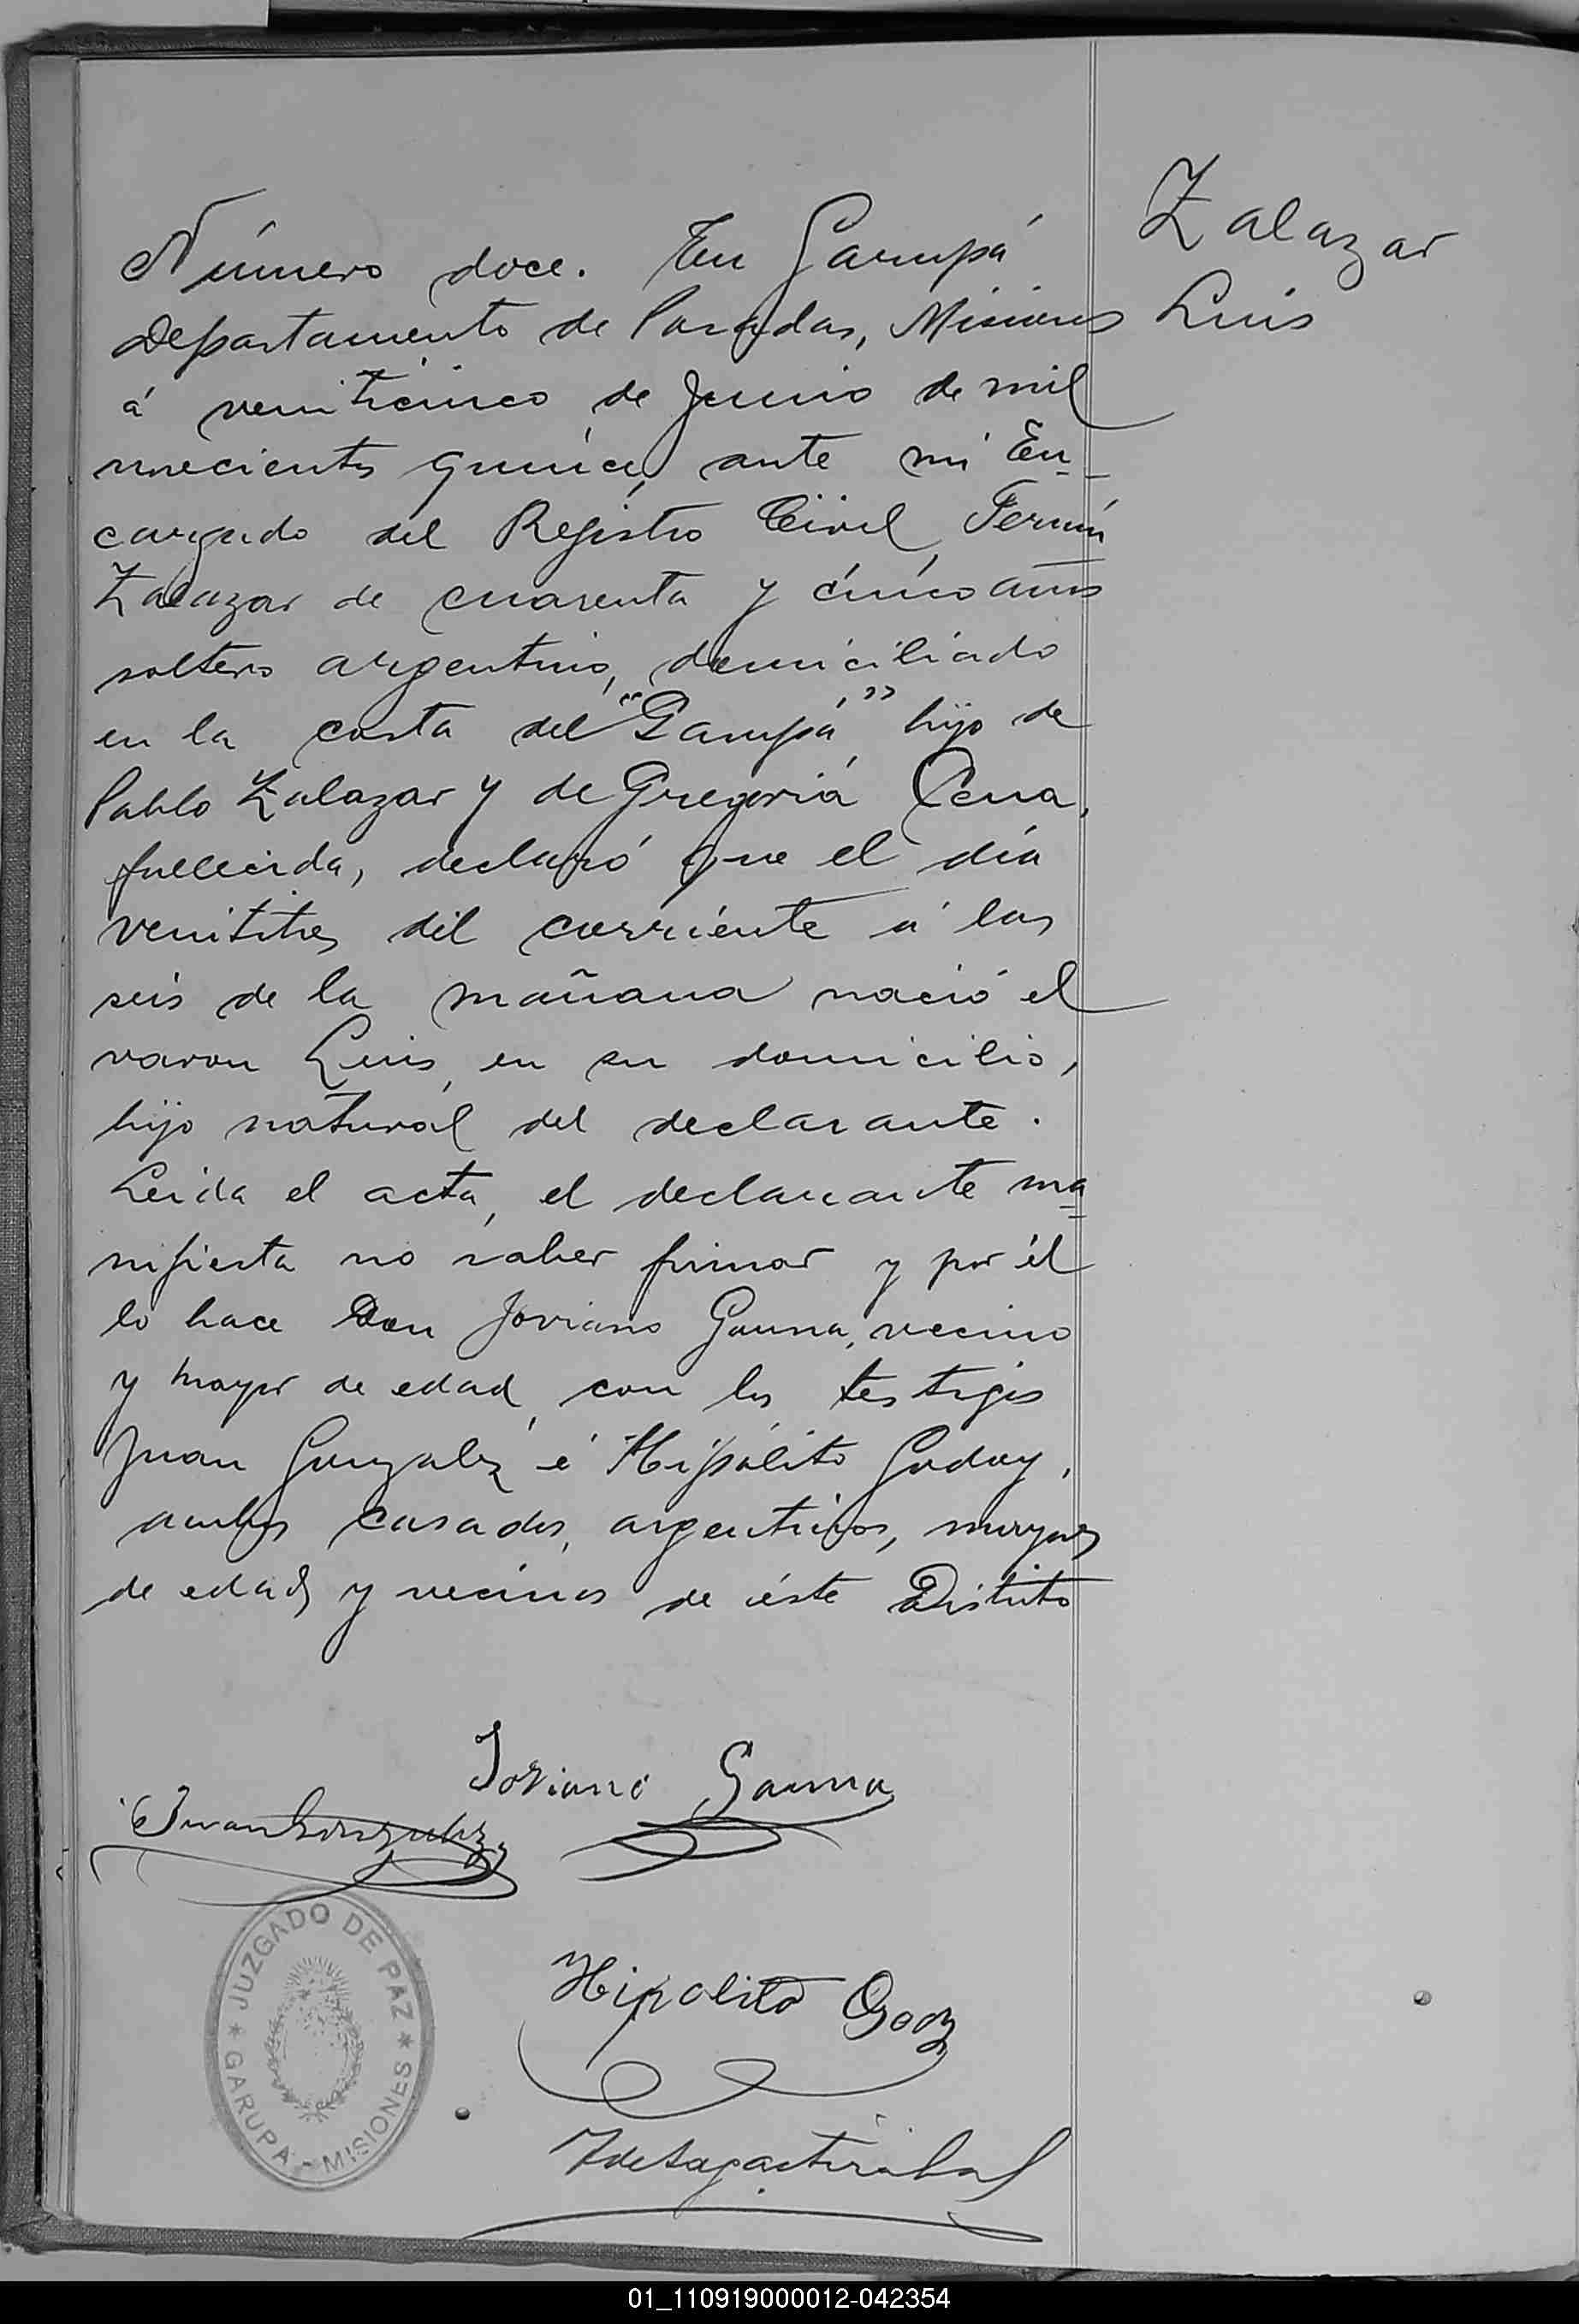 Zalazar
Luis
Número doce. En Garupá
Departamento de Posadas, Misiones
á veniticinco de Junio de mil
novecientos quince, ante mi En-
cargado del Registro Civil, Fermín
Zalazar de cuarenta y cinco años
soltero argentino, domiciliado
en la costa del "Garupá" hijo de
Pablo Zalazar y de Gregoria Cena,
fallecida, declaró que el día
venititres del corriente á las
seis de la mañana nació el
varon Luis, en su domicilio,
hijo natural del declarante.
Leida el acta, el declarante ma=
nifiesta no saber firmar y por él
lo hace Don Joviano Gauna, vecino
y mayor de edad, con los testigos
Juan Gonzalez é Hipólito Godoy,
ambos casados, argentinos, mayores
de edad y vecinos de éste Distrito
Joviano Gauna
Juan Gonzalez
Hipolito Godoy
JUZGADO DE PAZ
* GARUPA - MISIONES *
01_110919000012-042354